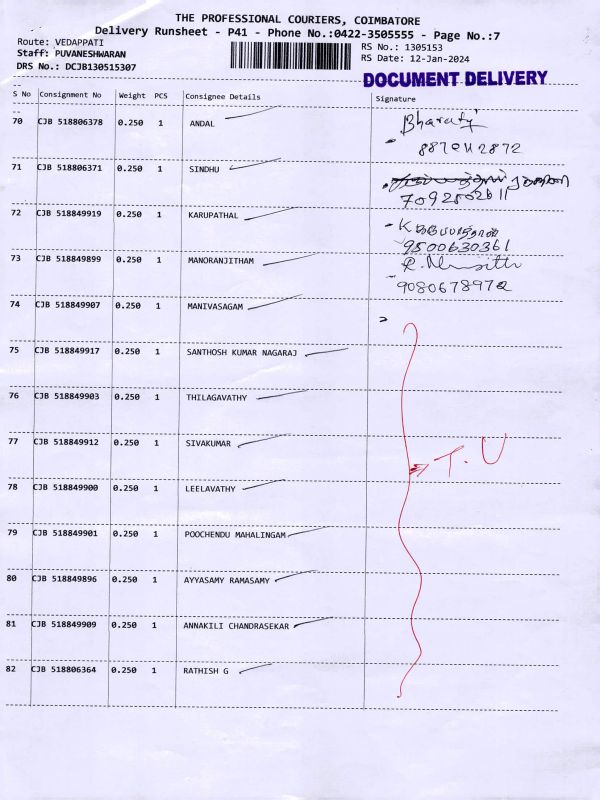 THE PROFESSIONAL COURIERS, COIMBATORE
Delivery Runsheet - P41 - Phone No.:0422-3505555 - Page No.:7
Route: VEDAPPATI
Staff: PUVANESHWARAN
DRS No.: DCJB130515307
RS No.: 1305153
RS Date: 12-Jan-2024
DOCUMENT DELIVERY
S No Consignment No Weight PCS Consignee Details Signature
70 CJB 518806378 0.250 1 ANDAL
8870112872
71 CJB 518806371 0.250 1 SINDHU
7092502611
72 CJB 518849919 0.250 1 KARUPATHAL
9500630361
73 CJB 518849899 0.250 1 MANORANJITHAM
9080678972
74 CJB 518849907 0.250 1 MANIVASAGAM
75 CJB 518849917 0.250 1 SANTHOSH KUMAR NAGARAJ
76 CJB 518849903 0.250 1 THILAGAVATHY
77 CJB 518849912 0.250 1 SIVAKUMAR
T. U
78 CJB 518849900 0.250 1 LEELAVATHY
79 CJB 518849901 0.250 1 POOCHENDU MAHALINGAM
80 CJB 518849896 0.250 1 AYYASAMY RAMASAMY
81 CJB 518849909 0.250 1 ANNAKILI CHANDRASEKAR
82 CJB 518806364 0.250 1 RATHISH G